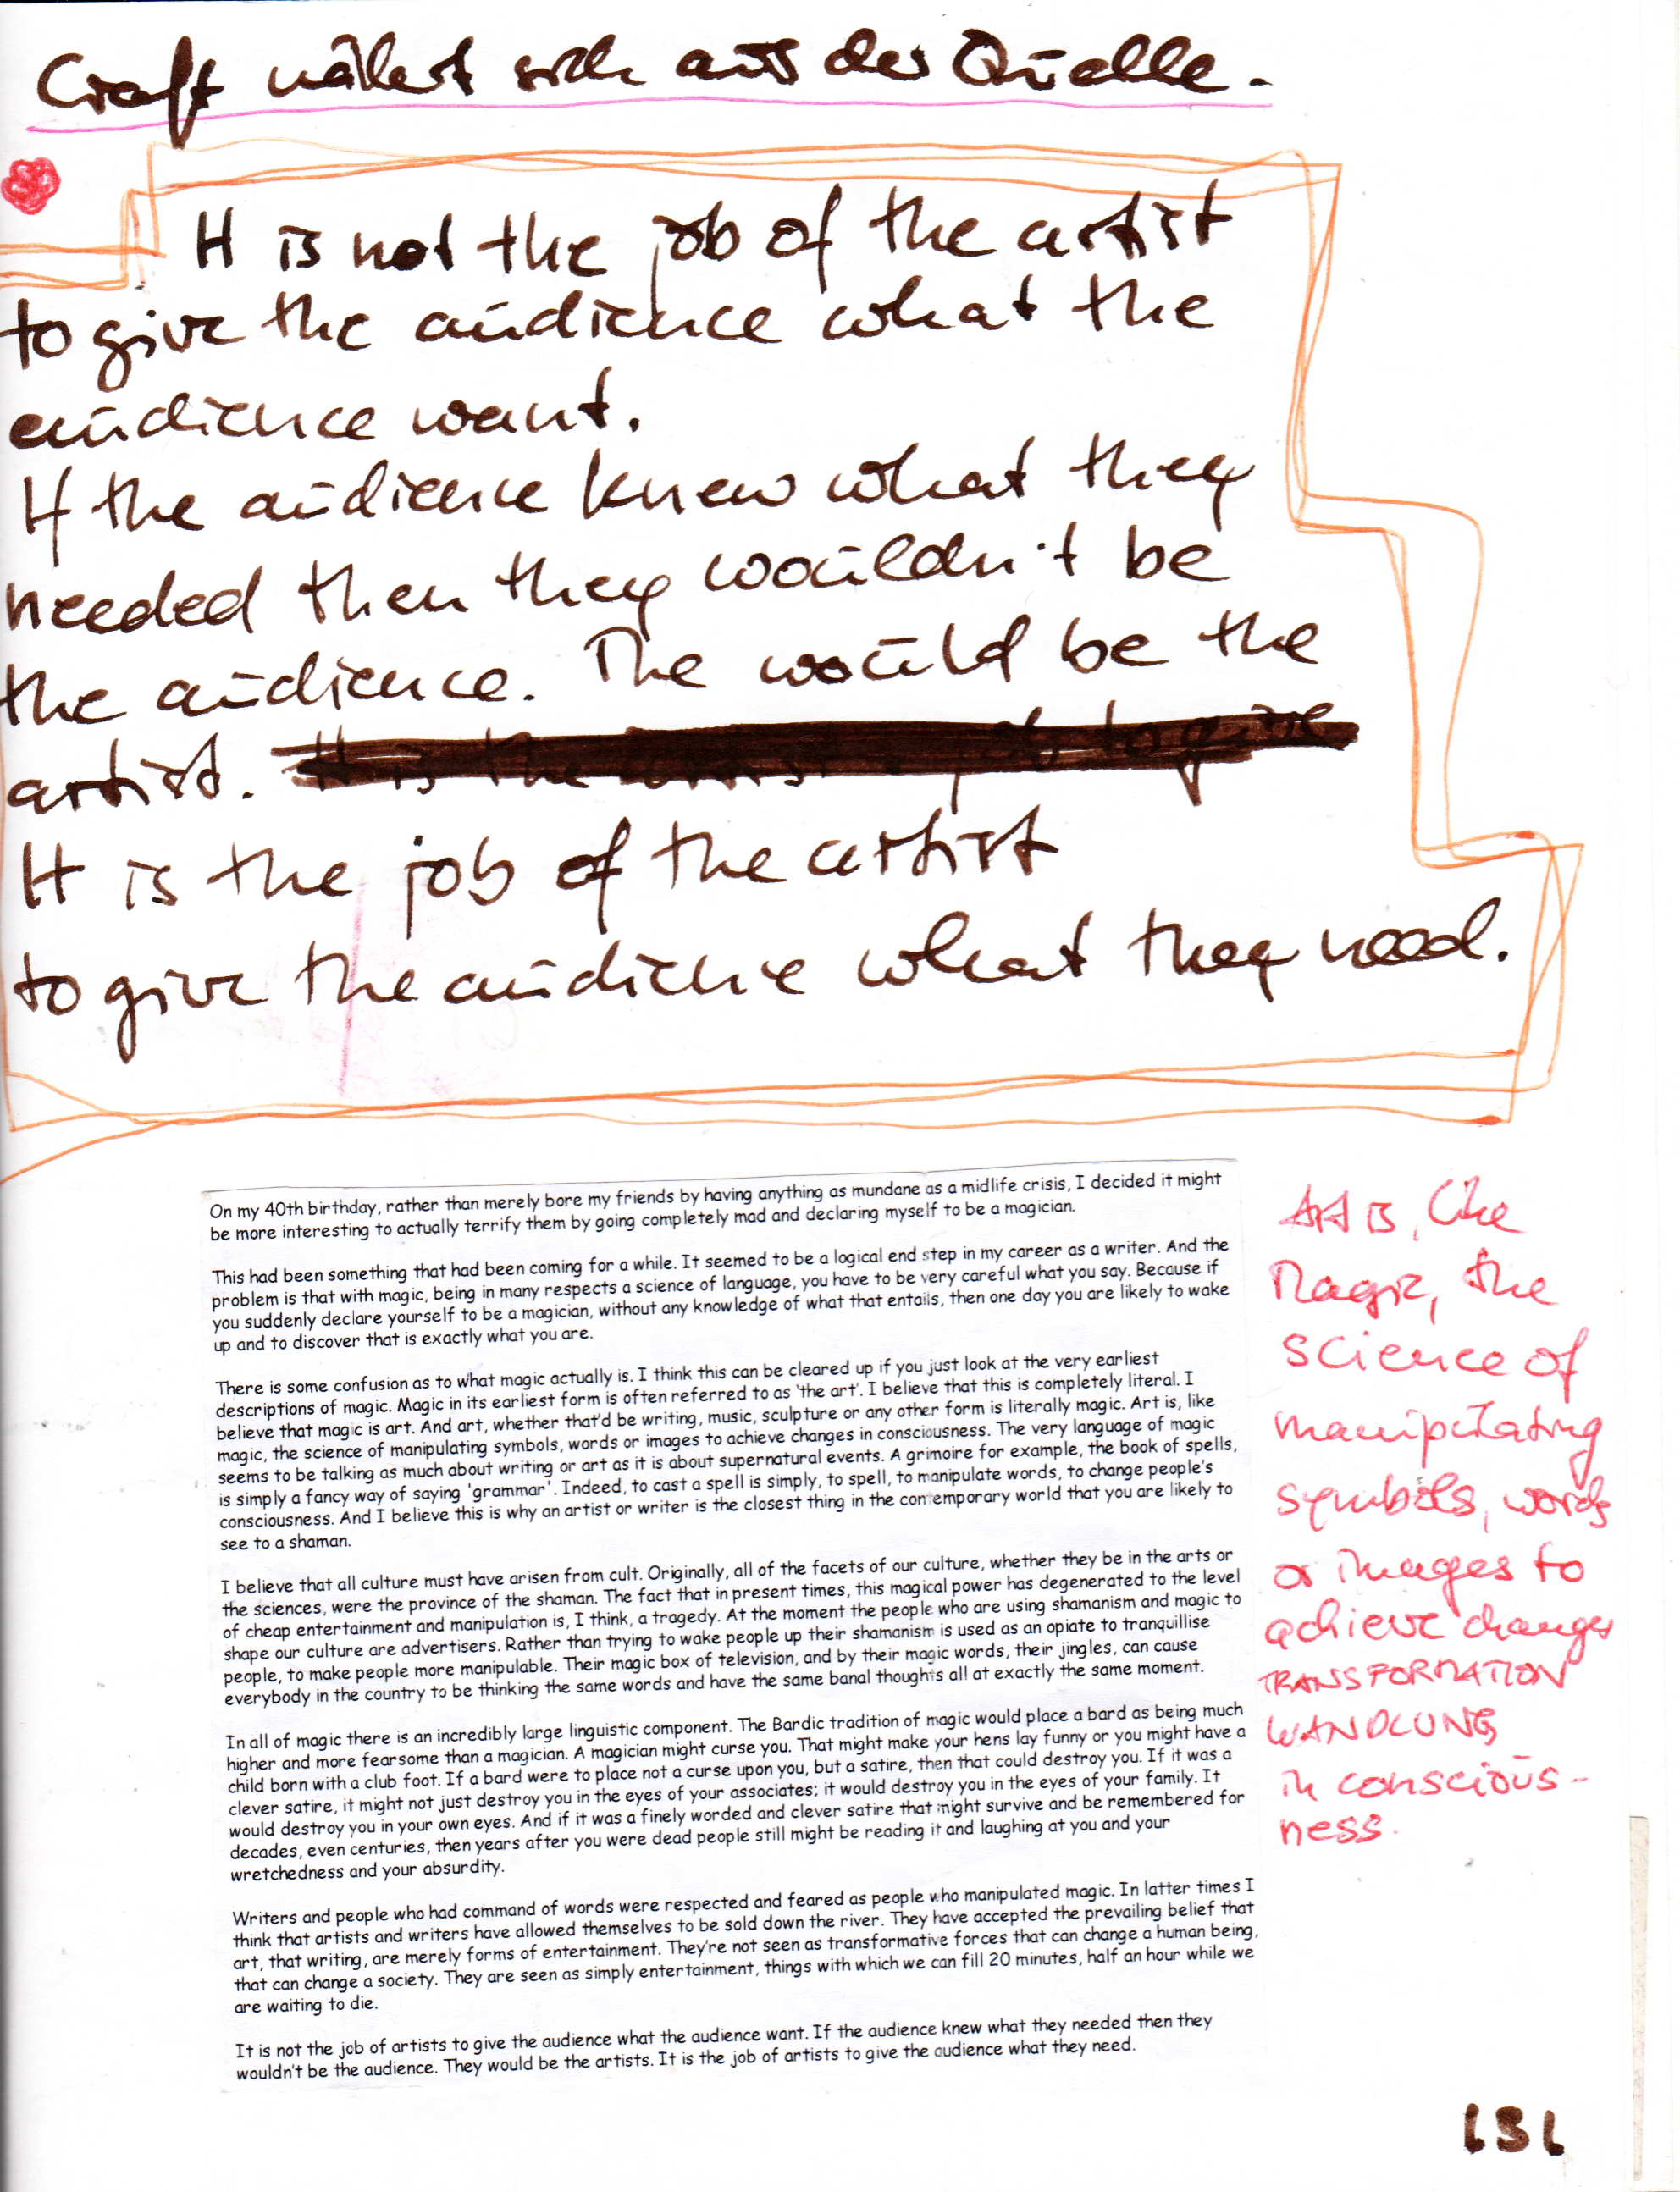 Craft nährt sich aus der Quelle.
It is not the job of the artist
to give the audience what the
audience want.
If the audience knew what they
needed then they wouldn't be
the audience. The would be the
artist. It is the artist's job to give
It is the job of the artist
to give the audience what they need.
On my 40th birthday, rather than merely bore my friends by having anything as mundane as a midlife crisis, I decided it might
be more interesting to actually terrify them by going completely mad and declaring myself to be a magician.
This had been something that had been coming for a while. It seemed to be a logical end step in my career as a writer. And the
problem is that with magic, being in many respects a science of language, you have to be very careful what you say. Because if
you suddenly declare yourself to be a magician, without any knowledge of what that entails, then one day you are likely to wake
up and to discover that is exactly what you are.
There is some confusion as to what magic actually is. I think this can be cleared up if you just look at the very earliest
descriptions of magic. Magic in its earliest form is often referred to as 'the art'. I believe that this is completely literal. I
believe that magic is art. And art, whether that'd be writing, music, sculpture or any other form is literally magic. Art is, like
magic, the science of manipulating symbols, words or images to achieve changes in consciousness. The very language of magic
seems to be talking as much about writing or art as it is about supernatural events. A grimoire for example, the book of spells,
is simply a fancy way of saying 'grammar'. Indeed, to cast a spell is simply, to spell, to manipulate words, to change people's
consciousness. And I believe this is why an artist or writer is the closest thing in the contemporary world that you are likely to
see to a shaman.
I believe that all culture must have arisen from cult. Originally, all of the facets of our culture, whether they be in the arts or
the sciences, were the province of the shaman. The fact that in present times, this magical power has degenerated to the level
of cheap entertainment and manipulation is, I think, a tragedy. At the moment the people who are using shamanism and magic to
shape our culture are advertisers. Rather than trying to wake people up their shamanism is used as an opiate to tranquillise
people, to make people more manipulable. Their magic box of television, and by their magic words, their jingles, can cause
everybody in the country to be thinking the same words and have the same banal thoughts all at exactly the same moment.
In all of magic there is an incredibly large linguistic component. The Bardic tradition of magic would place a bard as being much
higher and more fearsome than a magician. A magician might curse you. That might make your hens lay funny or you might have a
child born with a club foot. If a bard were to place not a curse upon you, but a satire, then that could destroy you. If it was a
clever satire, it might not just destroy you in the eyes of your associates; it would destroy you in the eyes of your family. It
would destroy you in your own eyes. And if it was a finely worded and clever satire that might survive and be remembered for
decades, even centuries, then years after you were dead people still might be reading it and laughing at you and your
wretchedness and your absurdity.
Writers and people who had command of words were respected and feared as people who manipulated magic. In latter times I
think that artists and writers have allowed themselves to be sold down the river. They have accepted the prevailing belief that
art, that writing, are merely forms of entertainment. They're not seen as transformative forces that can change a human being,
that can change a society. They are seen as simply entertainment, things with which we can fill 20 minutes, half an hour while we
are waiting to die.
It is not the job of artists to give the audience what the audience want. If the audience knew what they needed then they
wouldn't be the audience. They would be the artists. It is the job of artists to give the audience what they need.
Art is, like
Magic, the
science of
manipulating
symbols, words
or images to
achieve changes
TRANSFORMATION
WANDLUNG
in conscious-
ness.
151